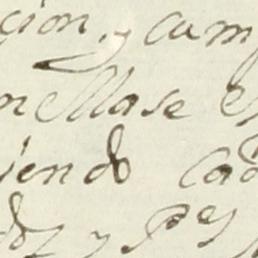 cion, y cum
en ella se e
iendo cad
dos y Pes